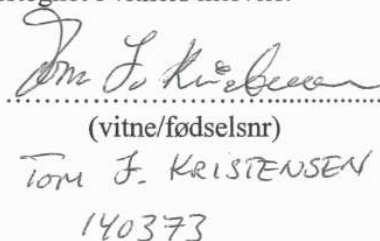 Tom F. Kristensen
(vitne/fødselsnr)
Tom F. KRISTENSEN
140373